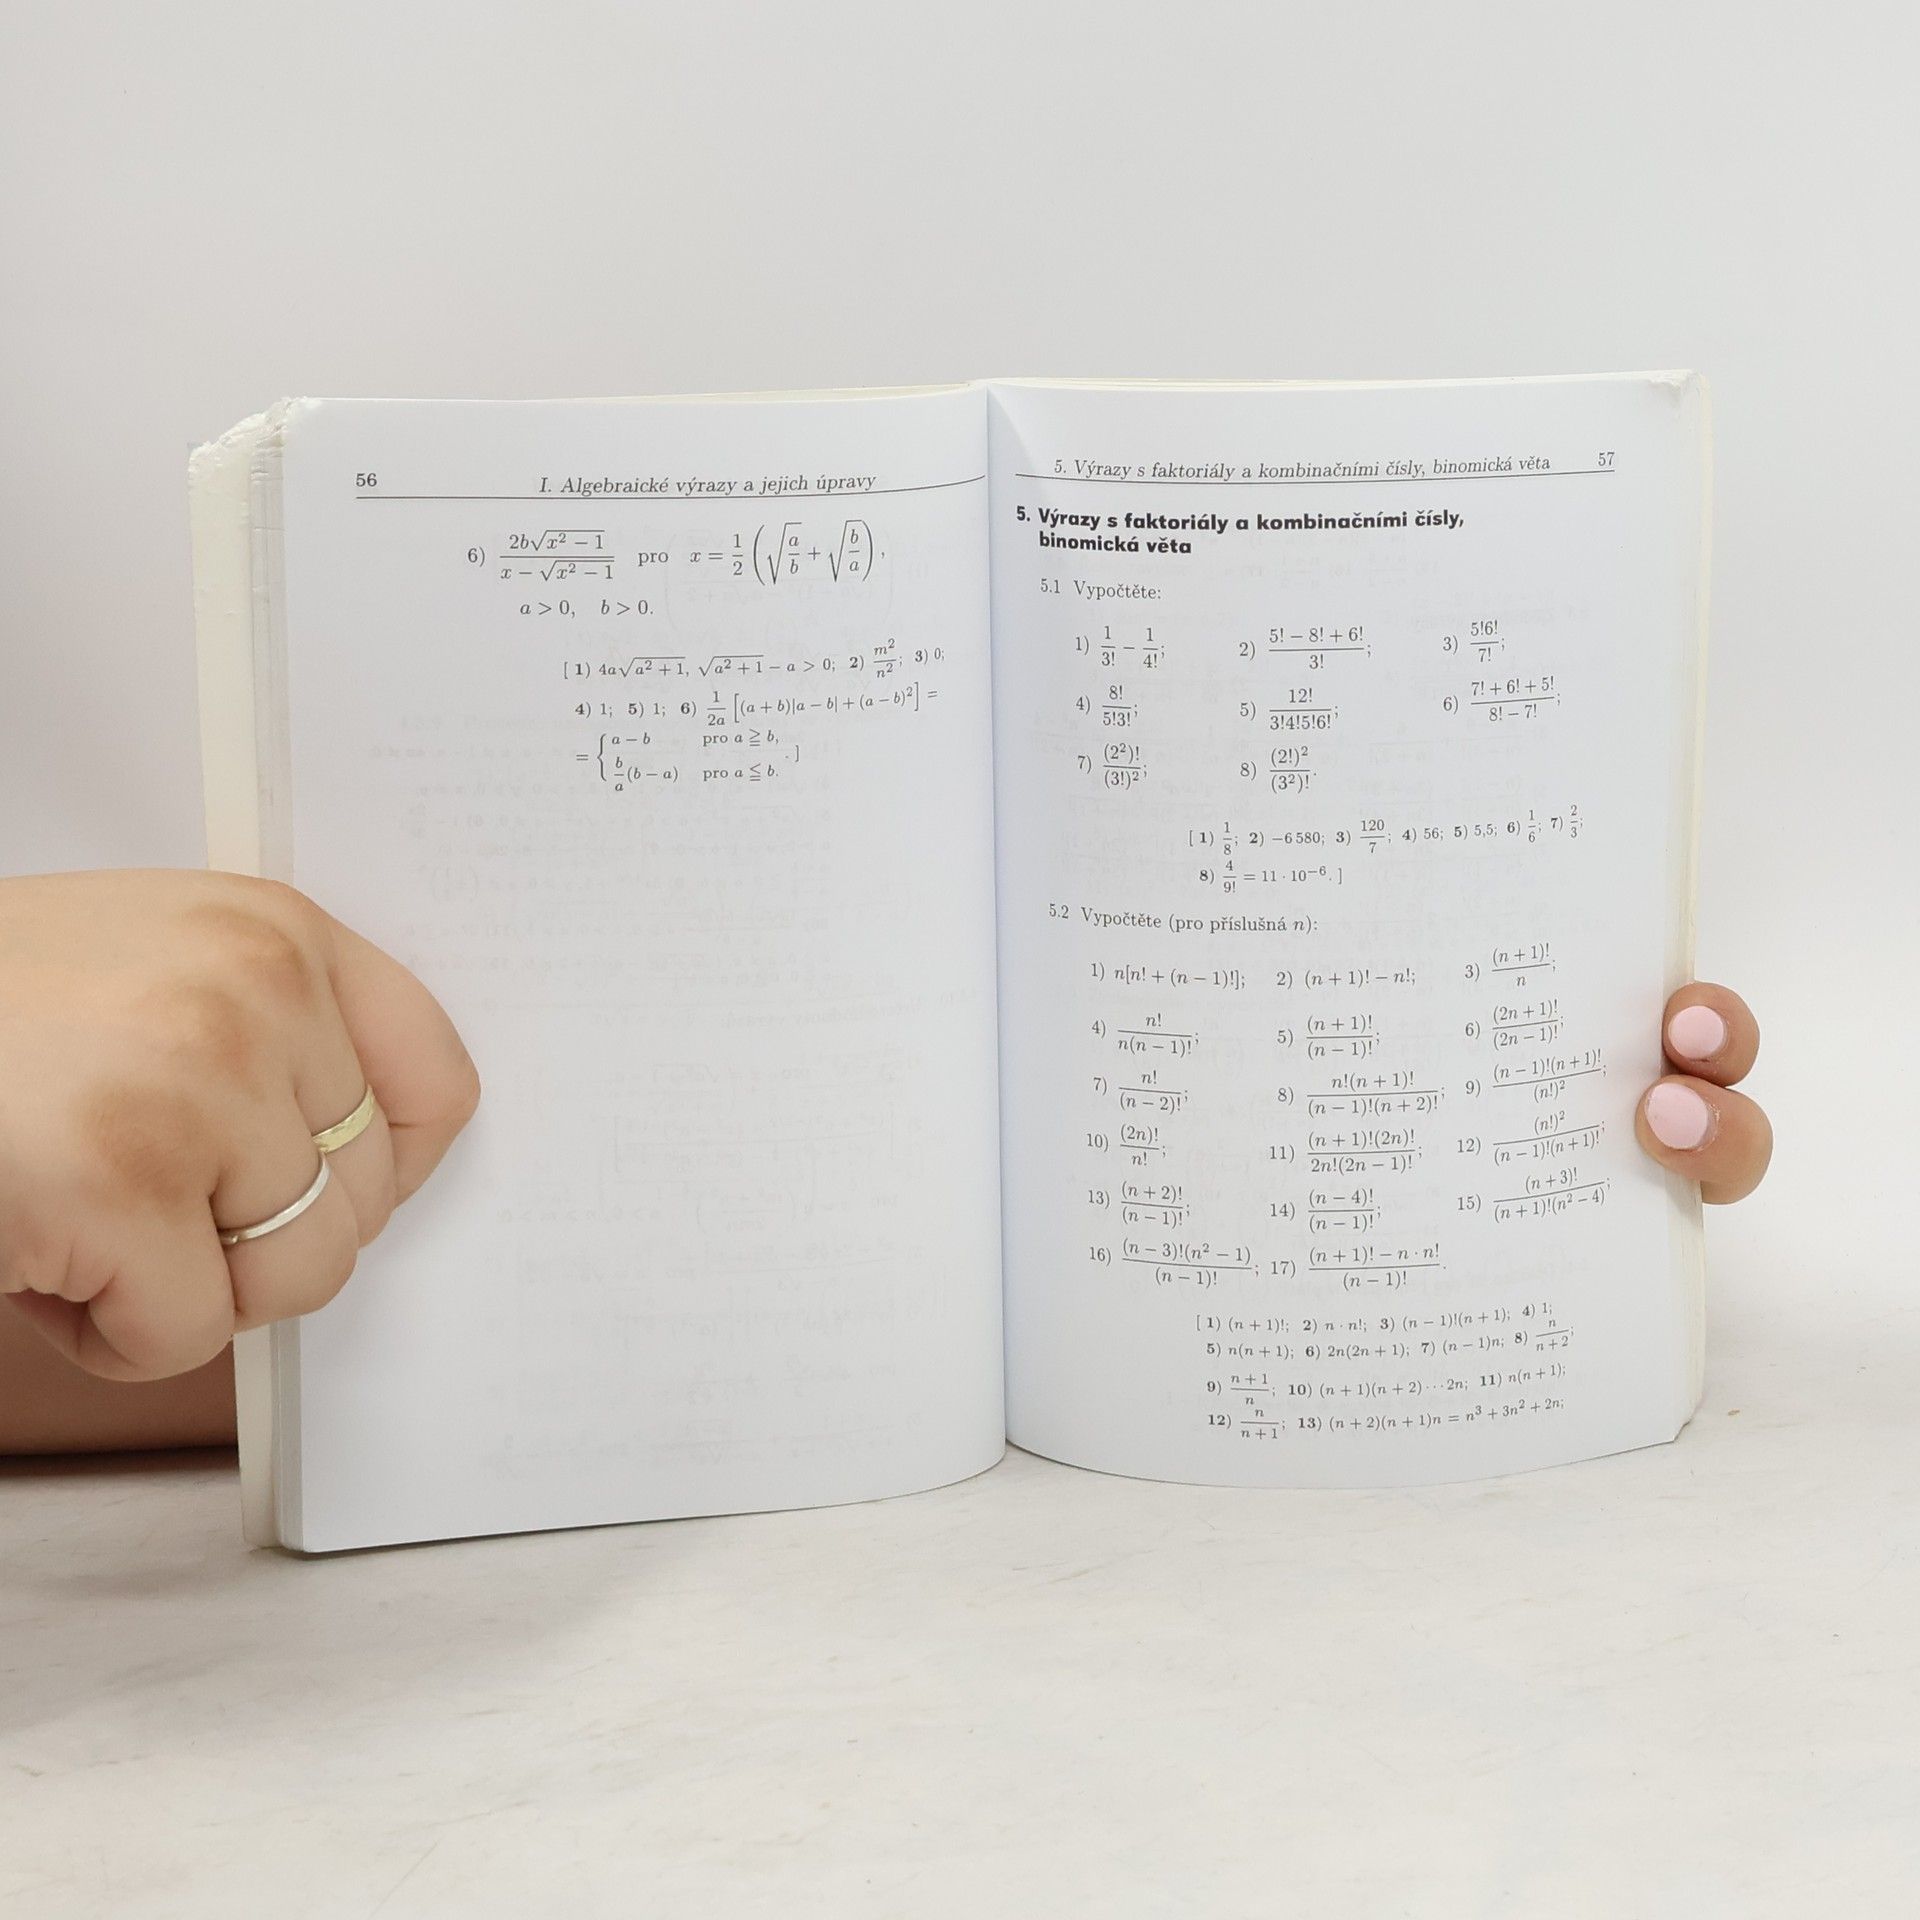 56 I. Algebraické výrazy a jejich úpravy
6) \frac{2b\sqrt{x^2 - 1}}{x - \sqrt{x^2 - 1}} pro x = \frac{1}{2} \left( \sqrt{\frac{a}{b}} + \sqrt{\frac{b}{a}} \right),
a > 0, b > 0.
[ 1) 4a\sqrt{a^2 + 1}, \sqrt{a^2 + 1} - a > 0; 2) \frac{m^2}{n^2}; 3) 0;
4) 1; 5) 1; 6) \frac{1}{2a} [(a + b)|a - b| + (a - b)^2] =
= \begin{cases} a - b & pro a ≧ b, \\ \frac{b}{a}(b - a) & pro a ≦ b. \end{cases} . ]
5. Výrazy s faktoriály a kombinačními čísly, binomická věta 57
5. Výrazy s faktoriály a kombinačními čísly,
binomická věta
5.1 Vypočtěte:
1) \frac{1}{3!} - \frac{1}{4!}; 2) \frac{5! - 8! + 6!}{3!}; 3) \frac{5!6!}{7!};
4) \frac{8!}{5!3!}; 5) \frac{12!}{3!4!5!6!}; 6) \frac{7! + 6! + 5!}{8! - 7!};
7) \frac{(2^2)!}{(3!)^2}; 8) \frac{(2!)^2}{(3^2)!}.
[ 1) \frac{1}{8}; 2) -6 580; 3) \frac{120}{7}; 4) 56; 5) 5,5; 6) \frac{1}{6}; 7) \frac{2}{3};
8) \frac{4}{9!} = 11 · 10^{-6}. ]
5.2 Vypočtěte (pro příslušná n):
1) n[n! + (n - 1)!]; 2) (n + 1)! - n!; 3) \frac{(n + 1)!}{n};
4) \frac{n!}{n(n - 1)!}; 5) \frac{(n + 1)!}{(n - 1)!}; 6) \frac{(2n + 1)!}{(2n - 1)!};
7) \frac{n!}{(n - 2)!}; 8) \frac{n!(n + 1)!}{(n - 1)!(n + 2)!}; 9) \frac{(n - 1)!(n + 1)!}{(n!)^2};
10) \frac{(2n)!}{n!}; 11) \frac{(n + 1)!(2n)!}{2n!(2n - 1)!}; 12) \frac{(n!)^2}{(n - 1)!(n + 1)!};
13) \frac{(n + 2)!}{(n - 1)!}; 14) \frac{(n - 4)!}{(n - 1)!}; 15) \frac{(n + 3)!}{(n + 1)!(n^2 - 4)};
16) \frac{(n - 3)!(n^2 - 1)}{(n - 1)!}; 17) \frac{(n + 1)! - n · n!}{(n - 1)!}.
[ 1) (n + 1)!; 2) n · n!; 3) (n - 1)!(n + 1); 4) 1;
5) n(n + 1); 6) 2n(2n + 1); 7) (n - 1)n; 8) \frac{n}{n + 2};
9) \frac{n + 1}{n}; 10) (n + 1)(n + 2) ··· 2n; 11) n(n + 1);
12) \frac{n}{n + 1}; 13) (n + 2)(n + 1)n = n^3 + 3n^2 + 2n;